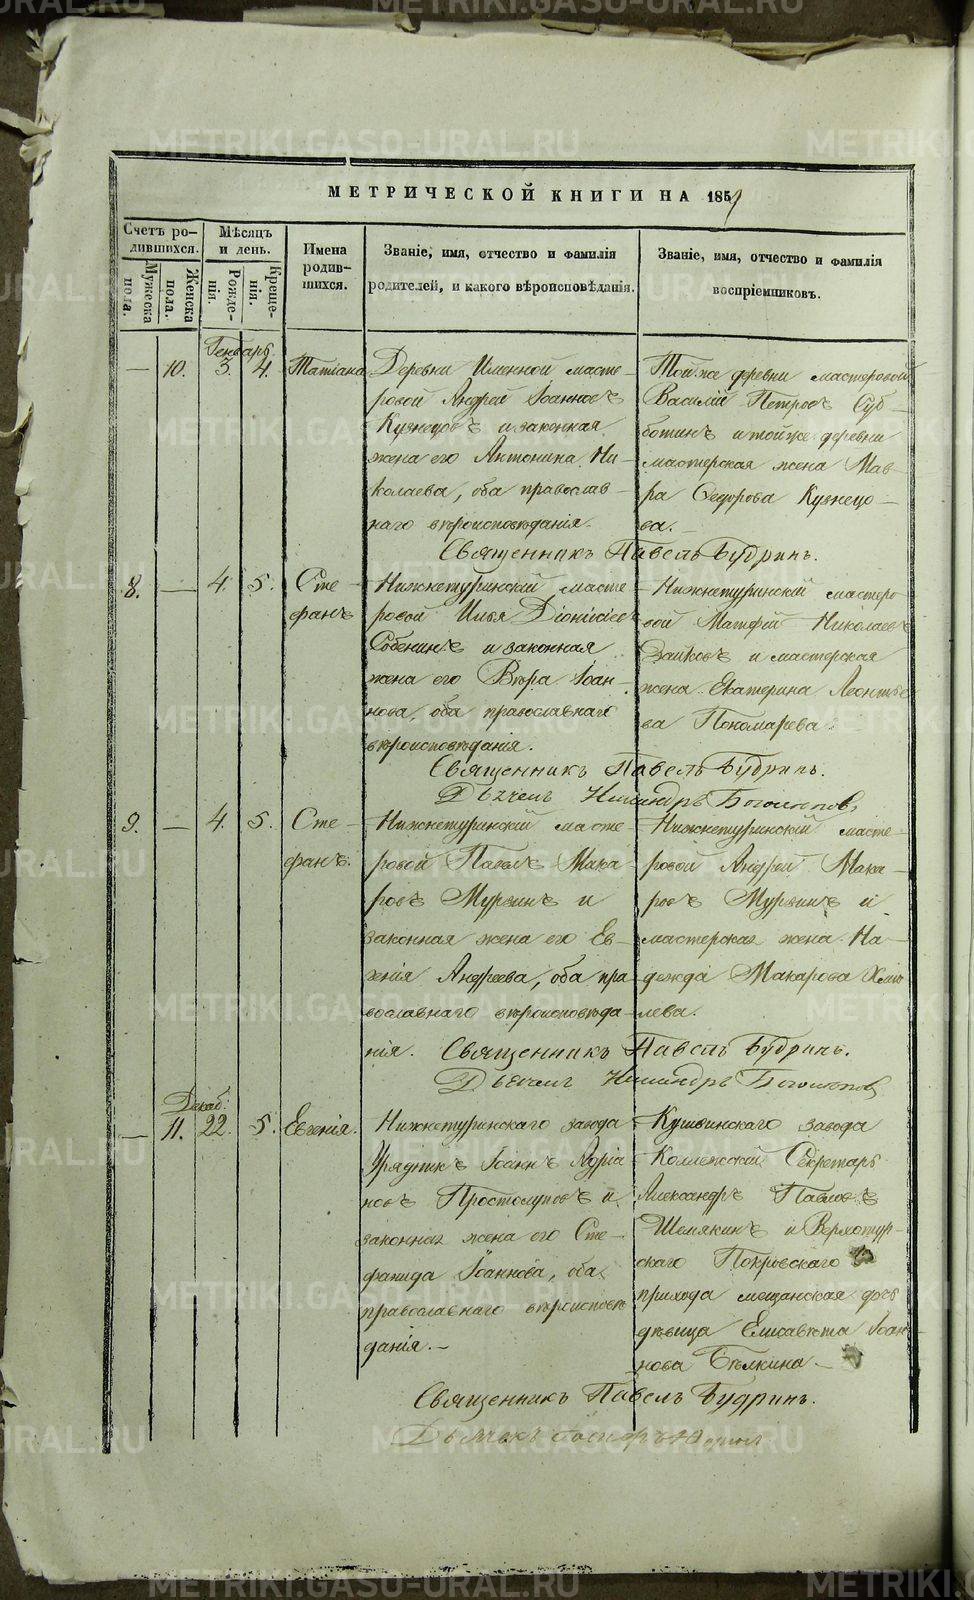 МЕТРИЧЕСКОЙ КНИГИ НА 185
Счетъ ро-
дившихся.
Мужеска
пола.
Женска
пола.
Мѣсяцъ
и день.
Рожде-
нія.
Креще-
нія.
Имена
родив-
шихся.
Званіе, имя, отчество и фамилія
родителей, и какого вѣроисповѣданія.
Званіе, имя, отчество и фамилія
воспріемниковъ.
Генварь
— 10. 3. 4. Татіана
Деревни Именной масте-
ровой Андрей Іоанновъ
Кузнецовъ и законная
жена его Антонина Ни-
колаева, оба православ-
наго вѣроисповѣданія.
Тойже деревни мастеровой
Василій Петровъ Суб-
ботинъ и тойже деревни
мастерская жена Мав-
ра Ѳедорова Кузнецо-
ва.—
Священникъ Павелъ Будринъ.
8. — 4. 5. Сте-
фанъ
Нижнетуринскій масте-
ровой Илья Діонисіевъ
Собенинъ и законная
жена его Вѣра Іоан-
нова, оба православнаго
вѣроисповѣданія.
Нижнетуринскій мастеро-
вой Матфій Николаевъ
Зайковъ и мастерская
жена Екатерина Леонтье-
ва Пономарева.
Священникъ Павелъ Будринъ.
9. — 4. 5. Сте-
фанъ.
Нижнетуринскій масте-
ровой Павелъ Мака-
ровъ Мурзинъ и
законная жена его Ев-
генія Андреева, оба пра-
вославнаго вѣроисповѣда-
нія.
Нижнетуринскій масте-
ровой Андрей Мака-
ровъ Мурзинъ и
мастерская жена На-
дежда Макарова
лева.
Священникъ Павелъ Будринъ.
Декаб:
— 11. 22. 5. Евгенія.
Нижнетуринскаго завода
Урядникъ Іоаннъ Адріа-
новъ Простолуповъ и
законная жена его Сте-
фанида Іоаннова, оба
православнаго вѣроисповѣ-
данія.—
Кушвинскаго завода
Коллежскій Секретарь
Александръ Павловъ
Шемякинъ и Верхотур-
скаго Покровскаго
прихода мещанская
дѣвица Елисавета Іоан-
нова Бѣлкина.—
Священникъ Павелъ Будринъ.
METRIKI.GASO-URAL.RU